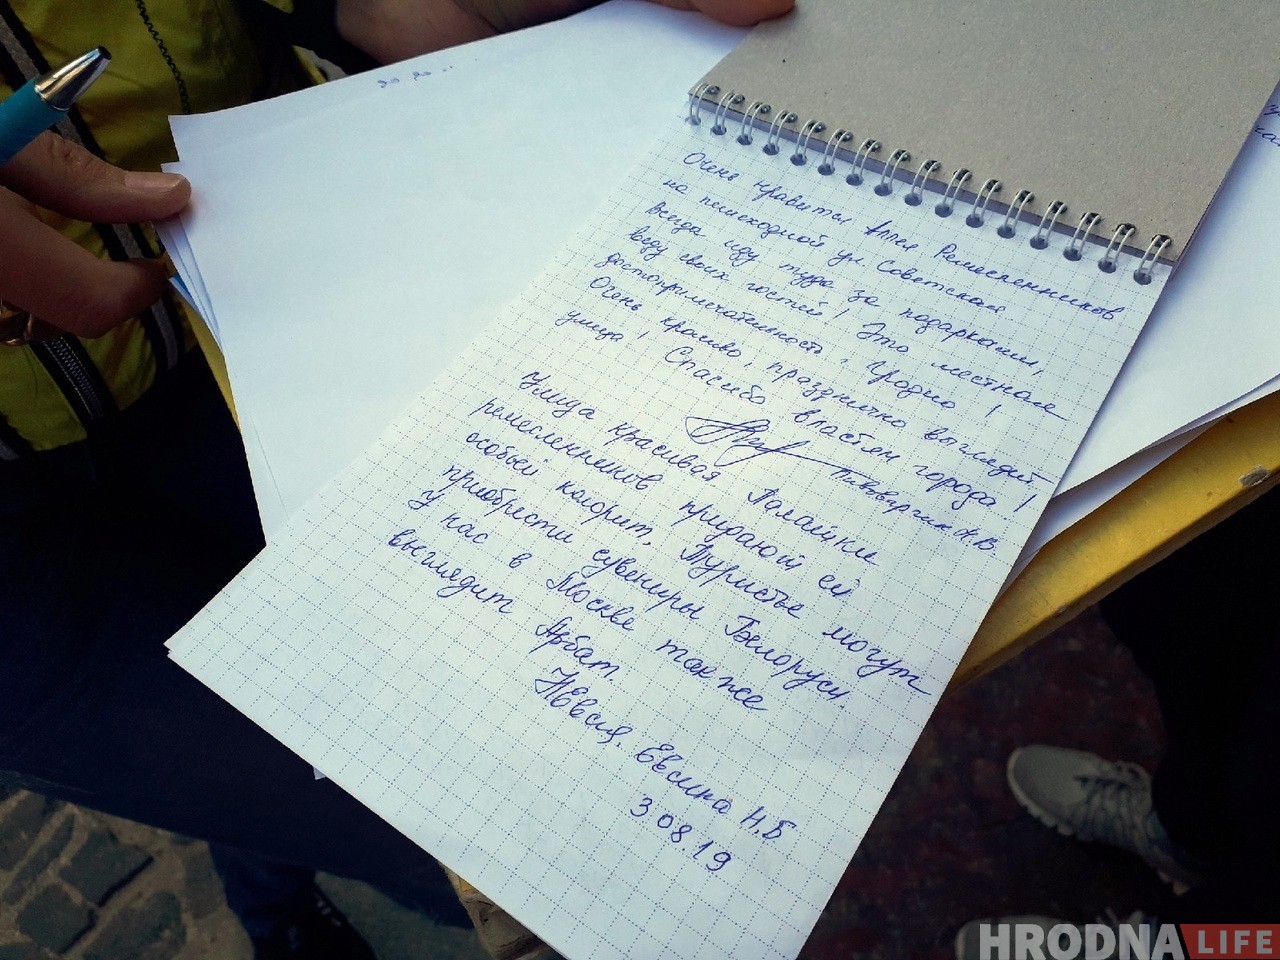 Очень нравится Аллея Ремесленников
на пешеходной ул. Советской.
Всегда иду туда за подарками,
веду своих гостей! Это местная
достопримечательность г. Гродно!
Очень красиво, празднично выглядит
улица! Спасибо властям города!
Пивоварчик А.В.
Улица красивая Палатки
ремесленников придают ей
особый колорит. Туристы могут
приобрести сувениры Белоруси.
У нас в Москве также
выглядит Арбат.
Н.Б
3 08 19
HRODNA LIFE